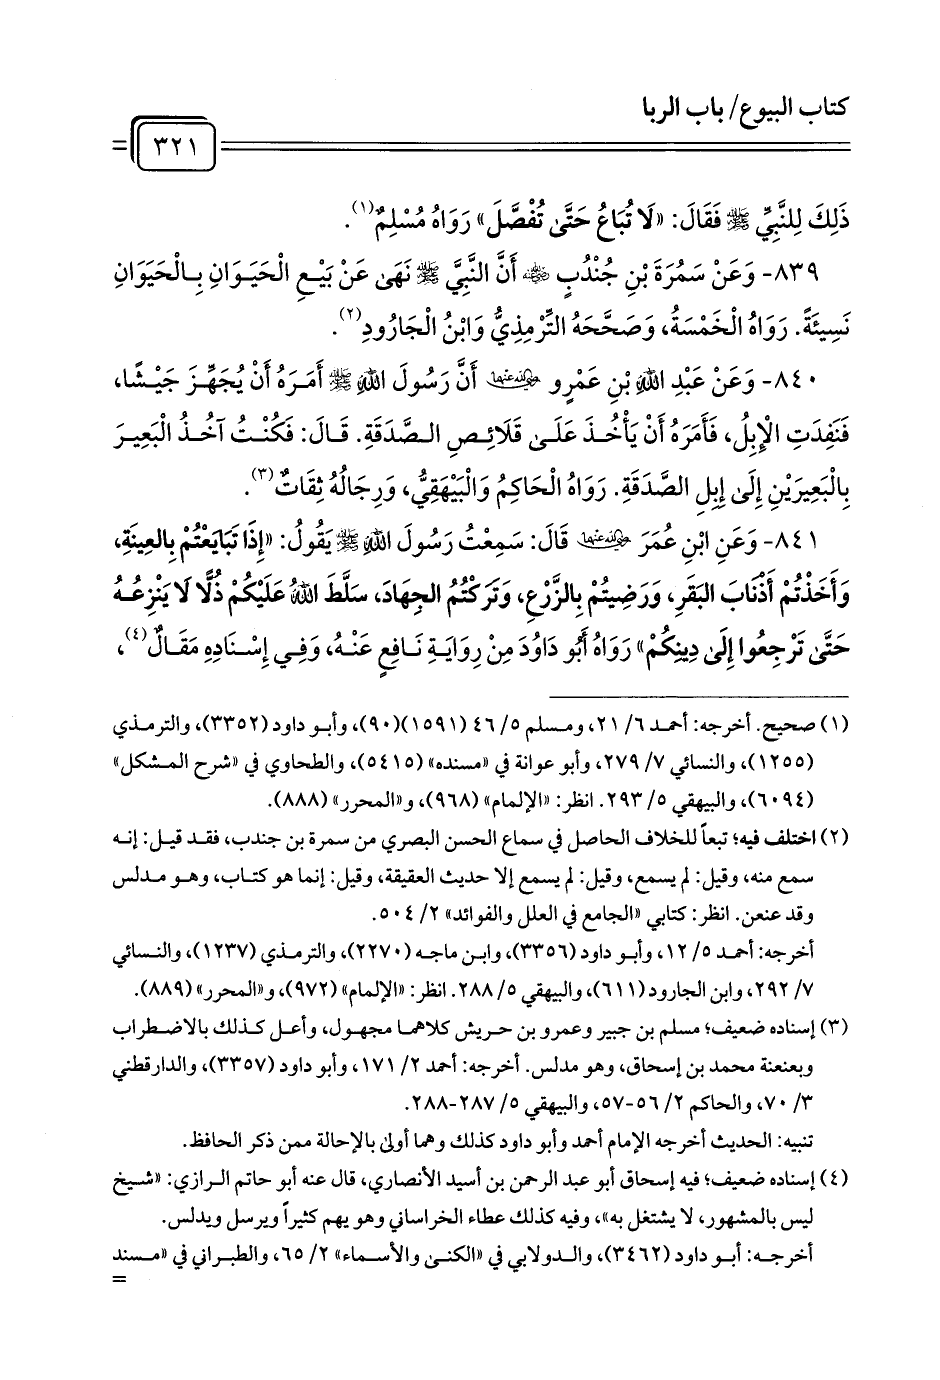 كتاب البيوع/ باب الربا
٣٢١
ذَلِكَ لِلنَّبِيِّ ﷺ فَقَالَ: «لَا تُبَاعُ حَتَّى تُفْصَلَ» رَوَاهُ مُسْلِمٌ(١).
٨٣٩- وَعَنْ سَمُرَةَ بْنِ جُنْدُبٍ رضي الله عنه أَنَّ النَّبِيَّ ﷺ نَهَى عَنْ بَيْعِ الْحَيَوَانِ بِالْحَيَوَانِ
نَسِيئَةً. رَوَاهُ الْخَمْسَةُ، وَصَحَّحَهُ التِّرْمِذِيُّ وَابْنُ الْجَارُودِ(٢).
٨٤٠- وَعَنْ عَبْدِ اللهِ بْنِ عَمْرٍو رضي الله عنهما أَنَّ رَسُولَ اللهِ ﷺ أَمَرَهُ أَنْ يُجَهِّزَ جَيْشًا،
فَنَفِدَتِ الْإِبِلُ، فَأَمَرَهُ أَنْ يَأْخُذَ عَلَى قَلَائِصِ الصَّدَقَةِ. قَالَ: فَكُنْتُ آخُذُ الْبَعِيرَ
بِالْبَعِيرَيْنِ إِلَى إِبِلِ الصَّدَقَةِ. رَوَاهُ الْحَاكِمُ وَالْبَيْهَقِيُّ، وَرِجَالُهُ ثِقَاتٌ(٣).
٨٤١- وَعَنِ ابْنِ عُمَرَ رضي الله عنهما قَالَ: سَمِعْتُ رَسُولَ اللهِ ﷺ يَقُولُ: «إِذَا تَبَايَعْتُمْ بِالعِينَةِ،
وَأَخَذْتُمْ أَذْنَابَ البَقَرِ، وَرَضِيتُمْ بِالزَّرْعِ، وَتَرَكْتُمُ الجِهَادَ، سَلَّطَ اللهُ عَلَيْكُمْ ذُلًّا لَا يَنْزِعُهُ
حَتَّى تَرْجِعُوا إِلَى دِينِكُمْ» رَوَاهُ أَبُو دَاوُدَ مِنْ رِوَايَةِ نَافِعٍ عَنْهُ، وَفِي إِسْنَادِهِ مَقَالٌ(٤)،
(١) صحيح. أخرجه: أحمد ٦/ ٢١، ومسلم ٥/ ٤٦ (١٥٩١)(٩٠)، وأبو داود (٣٣٥٢)، والترمذي
(١٢٥٥)، والنسائي ٧/ ٢٧٩، وأبو عوانة في «مسنده» (٥٤١٥)، والطحاوي في «شرح المشكل»
(٦٠٩٤)، والبيهقي ٥/ ٢٩٣. انظر: «الإلمام» (٩٦٨)، و«المحرر» (٨٨٨).
(٢) اختلف فيه؛ تبعاً للخلاف الحاصل في سماع الحسن البصري من سمرة بن جندب، فقد قيل: إنه
سمع منه، وقيل: لم يسمع، وقيل: لم يسمع إلا حديث العقيقة، وقيل: إنما هو كتاب، وهو مدلس
وقد عنعن. انظر: كتابي «الجامع في العلل والفوائد» ٢/ ٥٠٤.
أخرجه: أحمد ٥/ ١٢، وأبو داود (٣٣٥٦)، وابن ماجه (٢٢٧٠)، والترمذي (١٢٣٧)، والنسائي
٧/ ٢٩٢، وابن الجارود (٦١١)، والبيهقي ٥/ ٢٨٨. انظر: «الإلمام» (٩٧٢)، و«المحرر» (٨٨٩).
(٣) إسناده ضعيف؛ مسلم بن جبير وعمرو بن حريش كلاهما مجهول، وأعل كذلك بالاضطراب
وبعنعنة محمد بن إسحاق، وهو مدلس. أخرجه: أحمد ٢/ ١٧١، وأبو داود (٣٣٥٧)، والدارقطني
٣/ ٧٠، والحاكم ٢/ ٥٦-٥٧، والبيهقي ٥/ ٢٨٧-٢٨٨.
تنبيه: الحديث أخرجه الإمام أحمد وأبو داود كذلك وهما أولى بالإحالة ممن ذكر الحافظ.
(٤) إسناده ضعيف؛ فيه إسحاق أبو عبد الرحمن بن أسيد الأنصاري، قال عنه أبو حاتم الرازي: «شيخ
ليس بالمشهور، لا يشتغل به»، وفيه كذلك عطاء الخراساني وهو يهم كثيراً ويرسل ويدلس.
أخرجه: أبو داود (٣٤٦٢)، والدولابي في «الكنى والأسماء» ٢/ ٦٥، والطبراني في «مسند
=